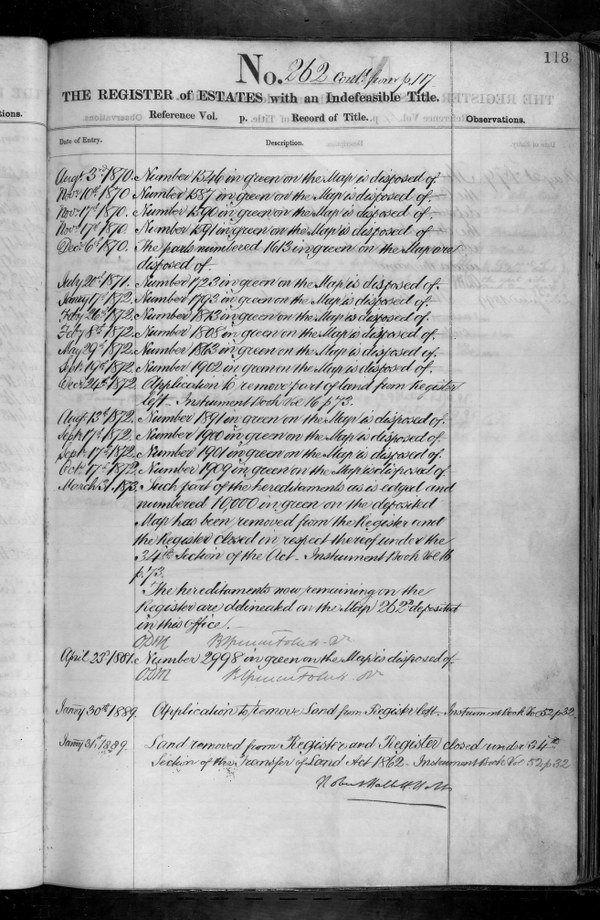 118
No. 262 Contd from p 117
THE REGISTER of ESTATES with an Indefeasible Title.
Reference Vol. p. Record of Title.
Observations.
tions.
Date of Entry. Description.
Augt 3rd 1870. Number 1546 in green on the Map is disposed of.
Novr 10th 1870 Number 1587 in green on the Map is disposed of.
Novr 17th 1870. Number 1590 in green on the Map is disposed of.
Novr 17th 1870. Number 1591 in green on the Map is disposed of
Decr 6th 1870. The parts numbered 1613 in green on the Map are
disposed of
July 20th 1871. Number 1723 in green on the Map is disposed of.
Janry 17th 1872. Number 1793 in green on the Map is disposed of.
Feby 26th 1872. Number 1813 in green on the Map is disposed of.
Feby 8th 1872. Number 1808 in green on the Map is disposed of.
May 29th 1872. Number 1863 in green on the Map is disposed of.
Septr 19th 1872. Number 1902 in green on the Map is disposed of.
Decr 24th 1872. Application to remove part of land from Register
left. Instrument Book Vol 16 p 73.
Augt 13th 1872. Number 1891 in green on the Map is disposed of.
Septr 17th 1872. Number 1900 in green on the Map is disposed of.
Septr 17th 1872. Number 1901 in green on the Map is disposed of.
Octr 17th 1872. Number 1909 in green on the Map is disposed of.
March 31. 1873. Such part of the hereditaments as is edged and
numbered 10,000 in green on the deposited
Map has been removed from the Register and
the Register closed in respect thereof under the
34th Section of the Act. Instrument Book Vol 16
p. 73.
The hereditaments now remaining on the
Register are delineated on the Map 262a deposited
in this Office.
ODM
April 23d 1881. Number 2998 in green on the Map is disposed of
ODM
Janry 30th 1889. Application to remove Land from Register left. Instrument Book Vol 52 p 32.
Janry 31st 1889. Land removed from Register and Register closed under 34th
Section of the Transfer of Land Act 1862. Instrument Book Vol 52 p 32